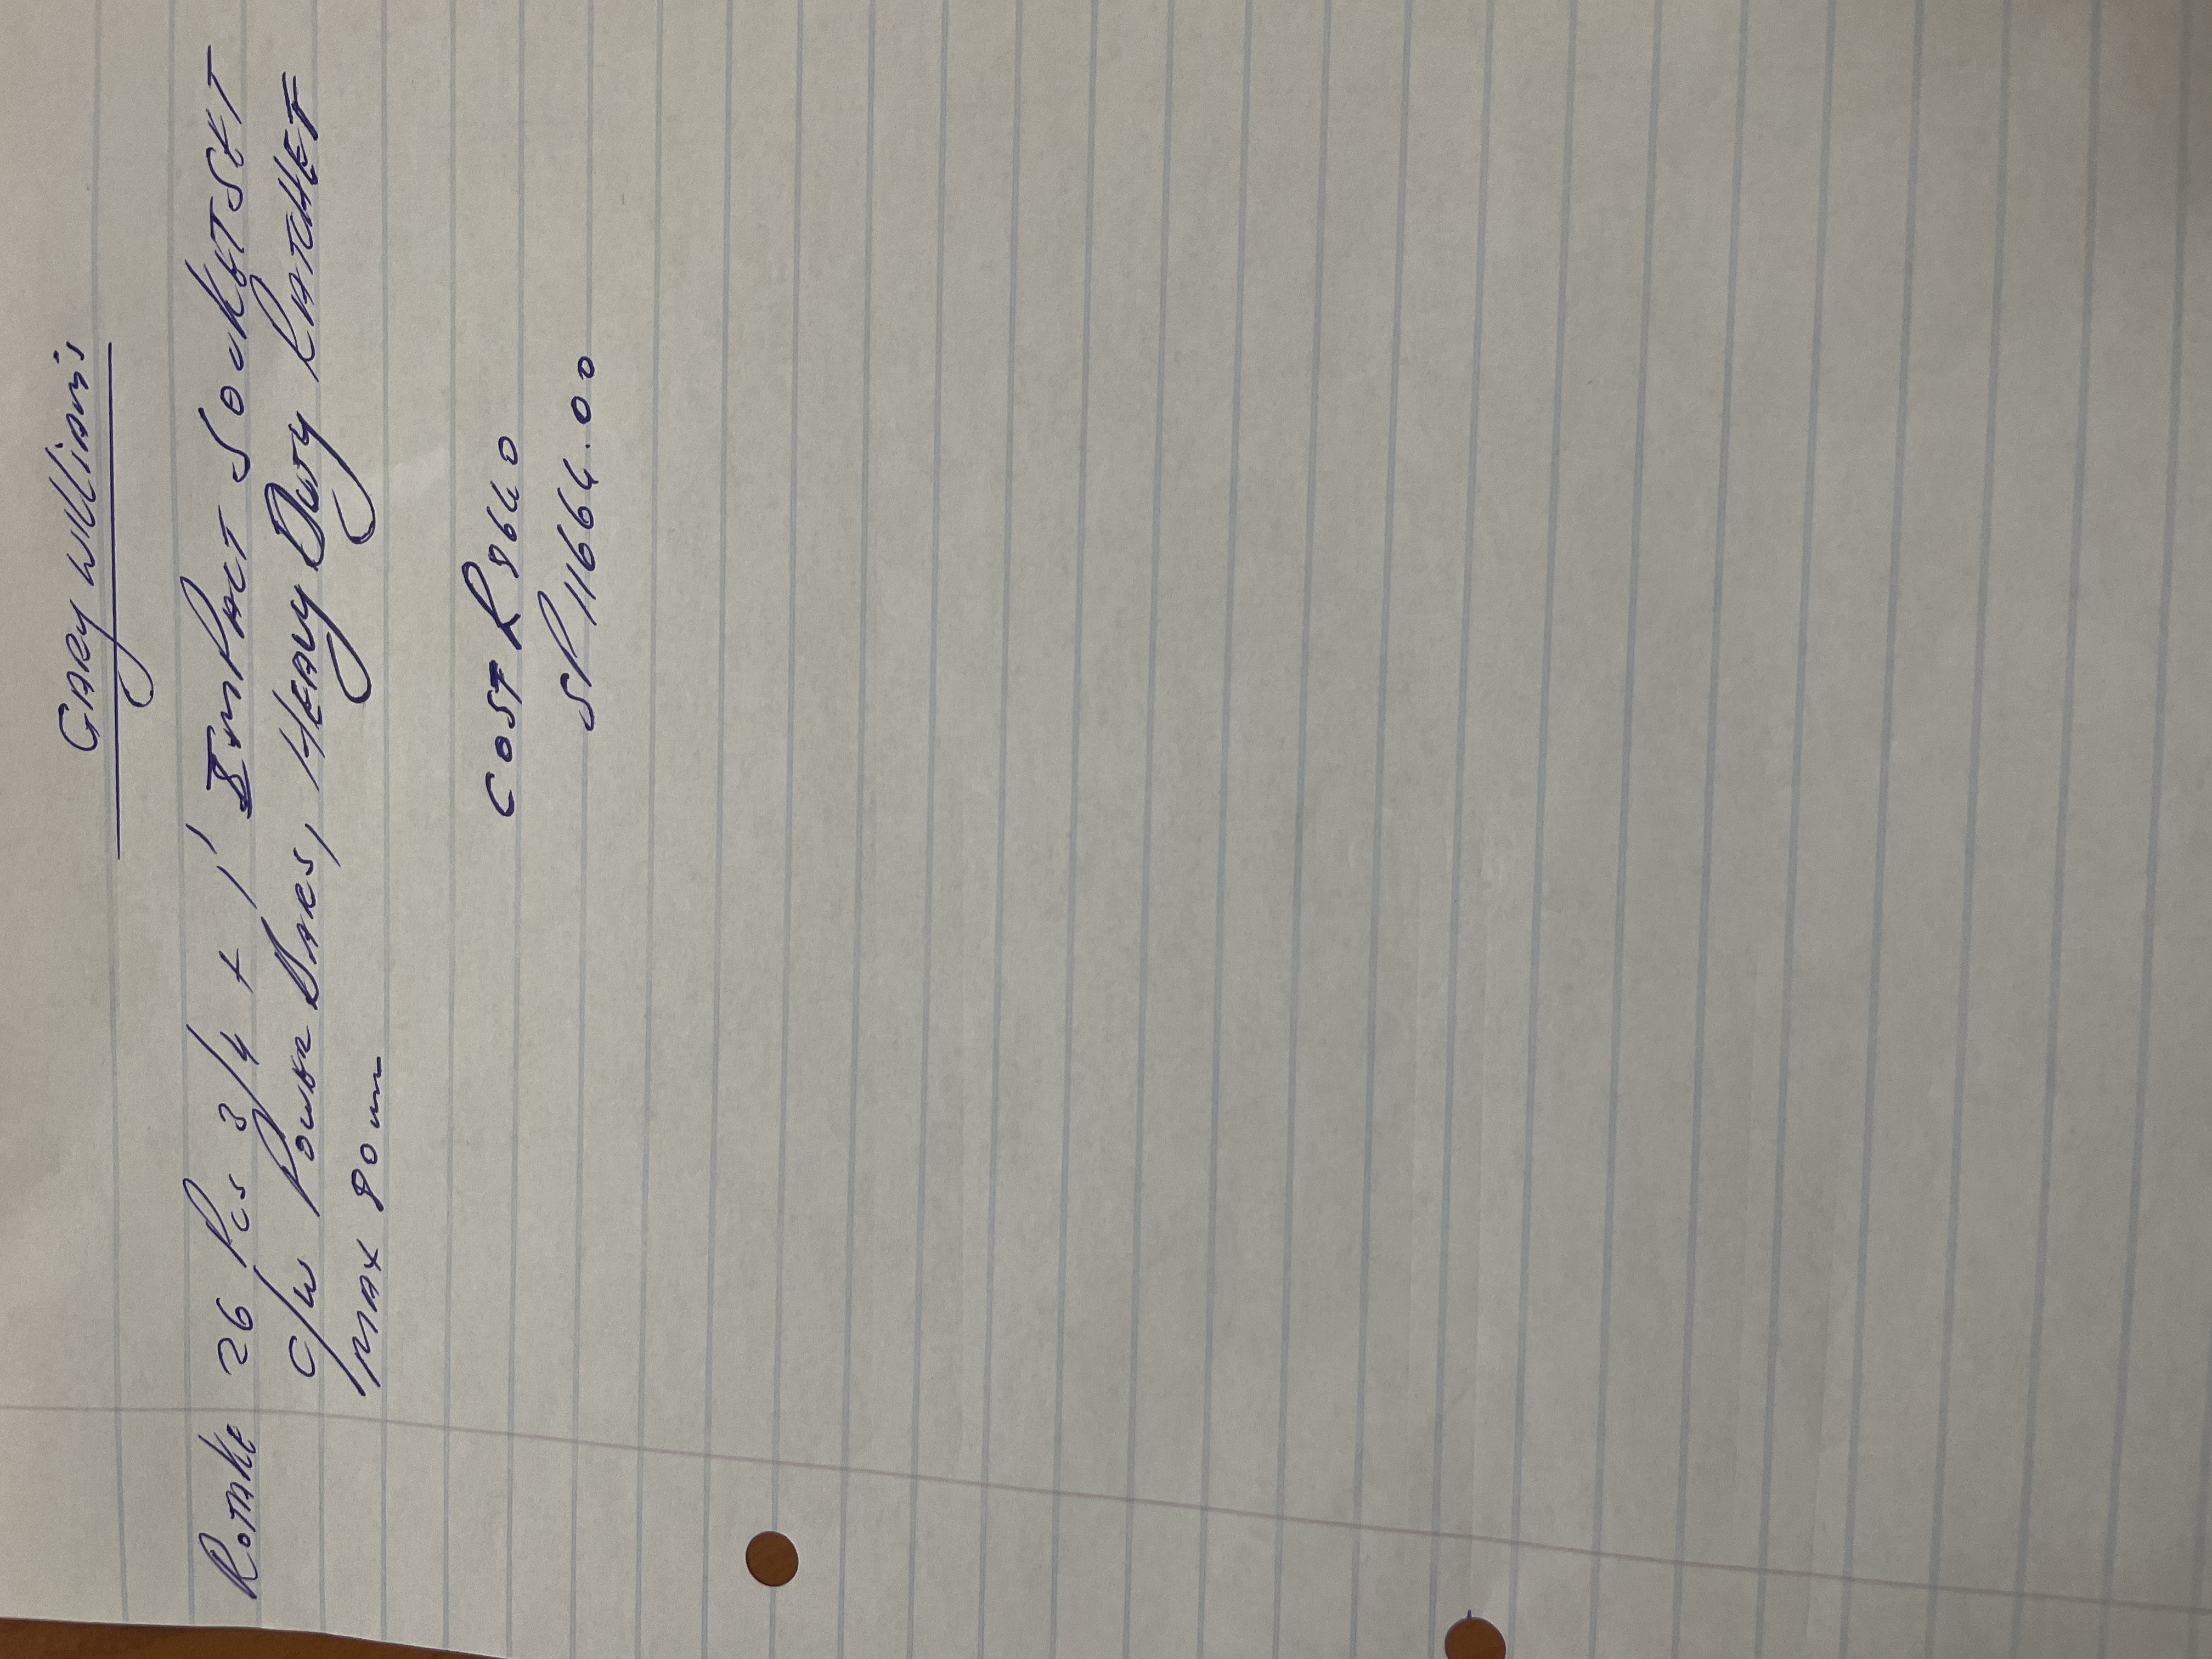 GARY WILLIAMS
ROTAKE 26 Pcs 3/4 + 1' IMPACT SOCKET SET
C/W POWER BARS, HEAVY DUTY RATCHET
MAX 80mm
COST R 8640
SP 11664.00